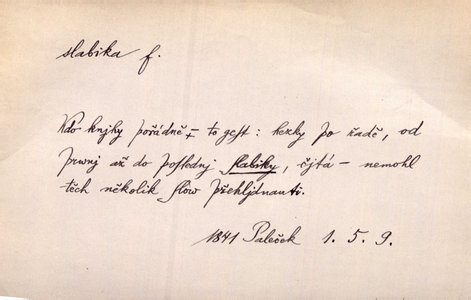 slabika f.
Kdo knjhy pořádně – to gest: hezky po řadě, od
prwnj až do poslednj slabiky, čjtá – nemohl
těch několik slow přehljdnauti.
1841 Paleček 1. 5. 9.